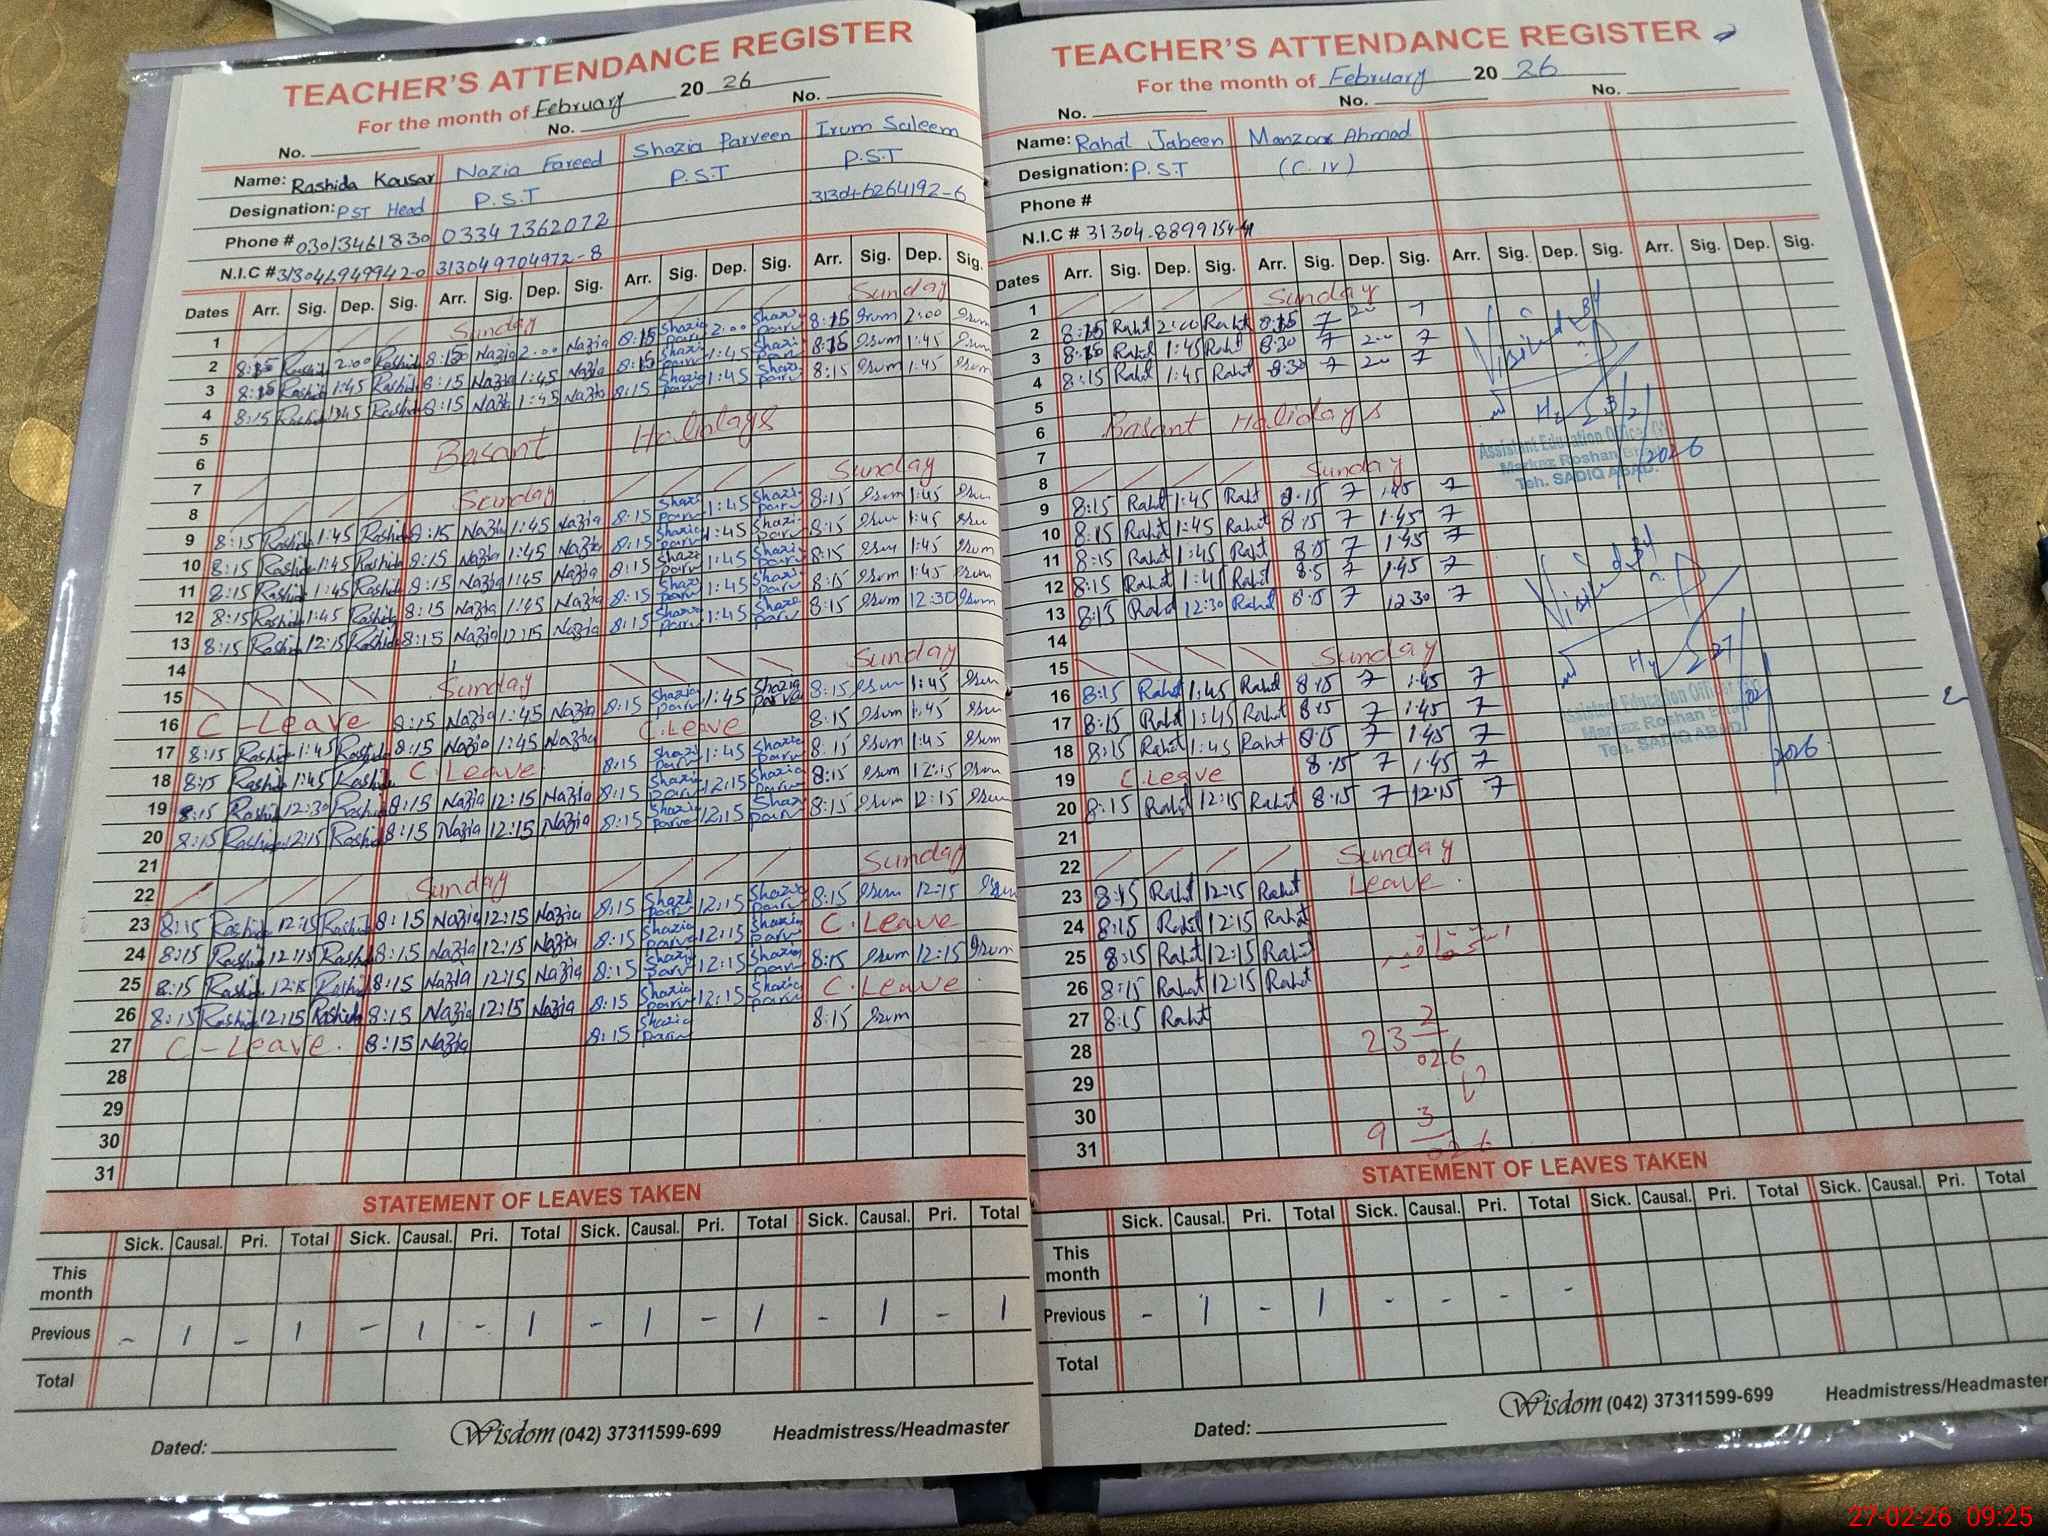 TEACHER'S ATTENDANCE REGISTER
For the month of February 20 26
No. No. No.
Name: Rashida Kousar Nazia Fareed Shazia Parveen Irum Saleem
Designation: PST Head P.S.T P.S.T P.S.T
Phone # 03013461830 03347362072
N.I.C # 313046949942-0 313049704972-8 31304-6264192-6
Dates Arr. Sig. Dep. Sig. Arr. Sig. Dep. Sig. Arr. Sig. Dep. Sig. Arr. Sig. Dep. Sig.
1 Sunday Sunday
2 8:15 Rashida 2:00 Rashida 8:15 Nazia 2:00 Nazia 8:15 Shazia Parv 2:00 Shazia Parv 8:15 Irum 2:00 Irum
3 8:15 Rashida 1:45 Rashida 8:15 Nazia 1:45 Nazia 8:15 Shazia Parv 1:45 Shazia Parv 8:15 Irum 1:45 Irum
4 8:15 Rashida 1:45 Rashida 8:15 Nazia 1:45 Nazia 8:15 Shazia Parv 1:45 Shazia Parv 8:15 Irum 1:45 Irum
5
6 Basant Holidays
7
8 Sunday Sunday
9 8:15 Rashida 1:45 Rashida 8:15 Nazia 1:45 Nazia 8:15 Shazia Parv 1:45 Shazia Parv 8:15 Irum 1:45 Irum
10 8:15 Rashida 1:45 Rashida 8:15 Nazia 1:45 Nazia 8:15 Shazia Parv 1:45 Shazia Parv 8:15 Irum 1:45 Irum
11 8:15 Rashida 1:45 Rashida 8:15 Nazia 1:45 Nazia 8:15 Shazia Parv 1:45 Shazia Parv 8:15 Irum 1:45 Irum
12 8:15 Rashida 1:45 Rashida 8:15 Nazia 1:45 Nazia 8:15 Shazia Parv 1:45 Shazia Parv 8:15 Irum 1:45 Irum
13 8:15 Rashida 12:15 Rashida 8:15 Nazia 12:15 Nazia 8:15 Shazia Parv 1:45 Shazia Parv 8:15 Irum 12:30 Irum
14
15 Sunday Sunday
16 C-Leave 8:15 Nazia 1:45 Nazia 8:15 Shazia Parv 1:45 Shazia Parv 8:15 Irum 1:45 Irum
17 8:15 Rashida 1:45 Rashida 8:15 Nazia 1:45 Nazia C.Leave 8:15 Irum 1:45 Irum
18 8:15 Rashida 1:45 Rashida C.Leave 8:15 Shazia Parv 1:45 Shazia Parv 8:15 Irum 1:45 Irum
19 8:15 Rashida 12:30 Rashida 8:15 Nazia 12:15 Nazia 8:15 Shazia Parv 12:15 Shazia Parv 8:15 Irum 12:15 Irum
20 8:15 Rashida 12:15 Rashida 8:15 Nazia 12:15 Nazia 8:15 Shazia Parv 12:15 Shazia Parv 8:15 Irum 12:15 Irum
21
22 Sunday Sunday
23 8:15 Rashida 12:15 Rashida 8:15 Nazia 12:15 Nazia 8:15 Shazia Parv 12:15 Shazia Parv 8:15 Irum 12:15 Irum
24 8:15 Rashida 12:15 Rashida 8:15 Nazia 12:15 Nazia 8:15 Shazia Parv 12:15 Shazia Parv C.Leave
25 8:15 Rashida 12:15 Rashida 8:15 Nazia 12:15 Nazia 8:15 Shazia Parv 12:15 Shazia Parv 8:15 Irum 12:15 Irum
26 8:15 Rashida 12:15 Rashida 8:15 Nazia 12:15 Nazia 8:15 Shazia Parv 12:15 Shazia Parv C.Leave
27 C-Leave. 8:15 Nazia 8:15 Shazia Parv 8:15 Irum
28
29
30
31
STATEMENT OF LEAVES TAKEN
Sick. Causal. Pri. Total Sick. Causal. Pri. Total Sick. Causal. Pri. Total Sick. Causal. Pri. Total
This month
Previous - 1 - 1 - 1 - 1 - 1 - 1 - 1 - 1
Total
Dated: Wisdom (042) 37311599-699 Headmistress/Headmaster
TEACHER'S ATTENDANCE REGISTER
For the month of February 20 26
No. No. No.
Name: Rahat Jabeen Manzoor Ahmad
Designation: P.S.T (C.IV)
Phone #
N.I.C # 31304-8899154-4
Dates Arr. Sig. Dep. Sig. Arr. Sig. Dep. Sig. Arr. Sig. Dep. Sig. Arr. Sig. Dep. Sig.
1 Sunday
2 8:15 Rahat 2:00 Rahat 8:15
3 8:15 Rahat 1:45 Rahat 8:30
4 8:15 Rahat 1:45 Rahat 8:30
5
6 Basant Holidays
7
8 Sunday
9 8:15 Rahat 1:45 Rahat 8:15 1:45
10 8:15 Rahat 1:45 Rahat 8:15 1:45
11 8:15 Rahat 1:45 Rahat 8:15 1:45
12 8:15 Rahat 1:45 Rahat 8:15 1:45
13 8:15 Rahat 12:30 Rahat 8:15 12:30
14
15 Sunday
16 8:15 Rahat 1:45 Rahat 8:15 1:45
17 8:15 Rahat 1:45 Rahat 8:15 1:45
18 8:15 Rahat 1:45 Rahat 8:15 1:45
19 C.Leave 8:15 1:45
20 8:15 Rahat 12:15 Rahat 8:15 12:15
21
22 Sunday
23 8:15 Rahat 12:15 Rahat Leave.
24 8:15 Rahat 12:15 Rahat
25 8:15 Rahat 12:15 Rahat
26 8:15 Rahat 12:15 Rahat
27 8:15 Rahat
28 23 2/026
29
30
31 9 3/026
Visited By
3/2/2026
Assistant Education Officer
Markaz Roshan
Teh. SADIQ ABAD.
Visited By
27/02/2026
Assistant Education Officer
Markaz Roshan
Teh. SADIQ ABAD
STATEMENT OF LEAVES TAKEN
Sick. Causal. Pri. Total Sick. Causal. Pri. Total Sick. Causal. Pri. Total Sick. Causal. Pri. Total
This month
Previous - 1 - 1 - - - -
Total
Dated: Wisdom (042) 37311599-699 Headmistress/Headmaster
27-02-26 09:25